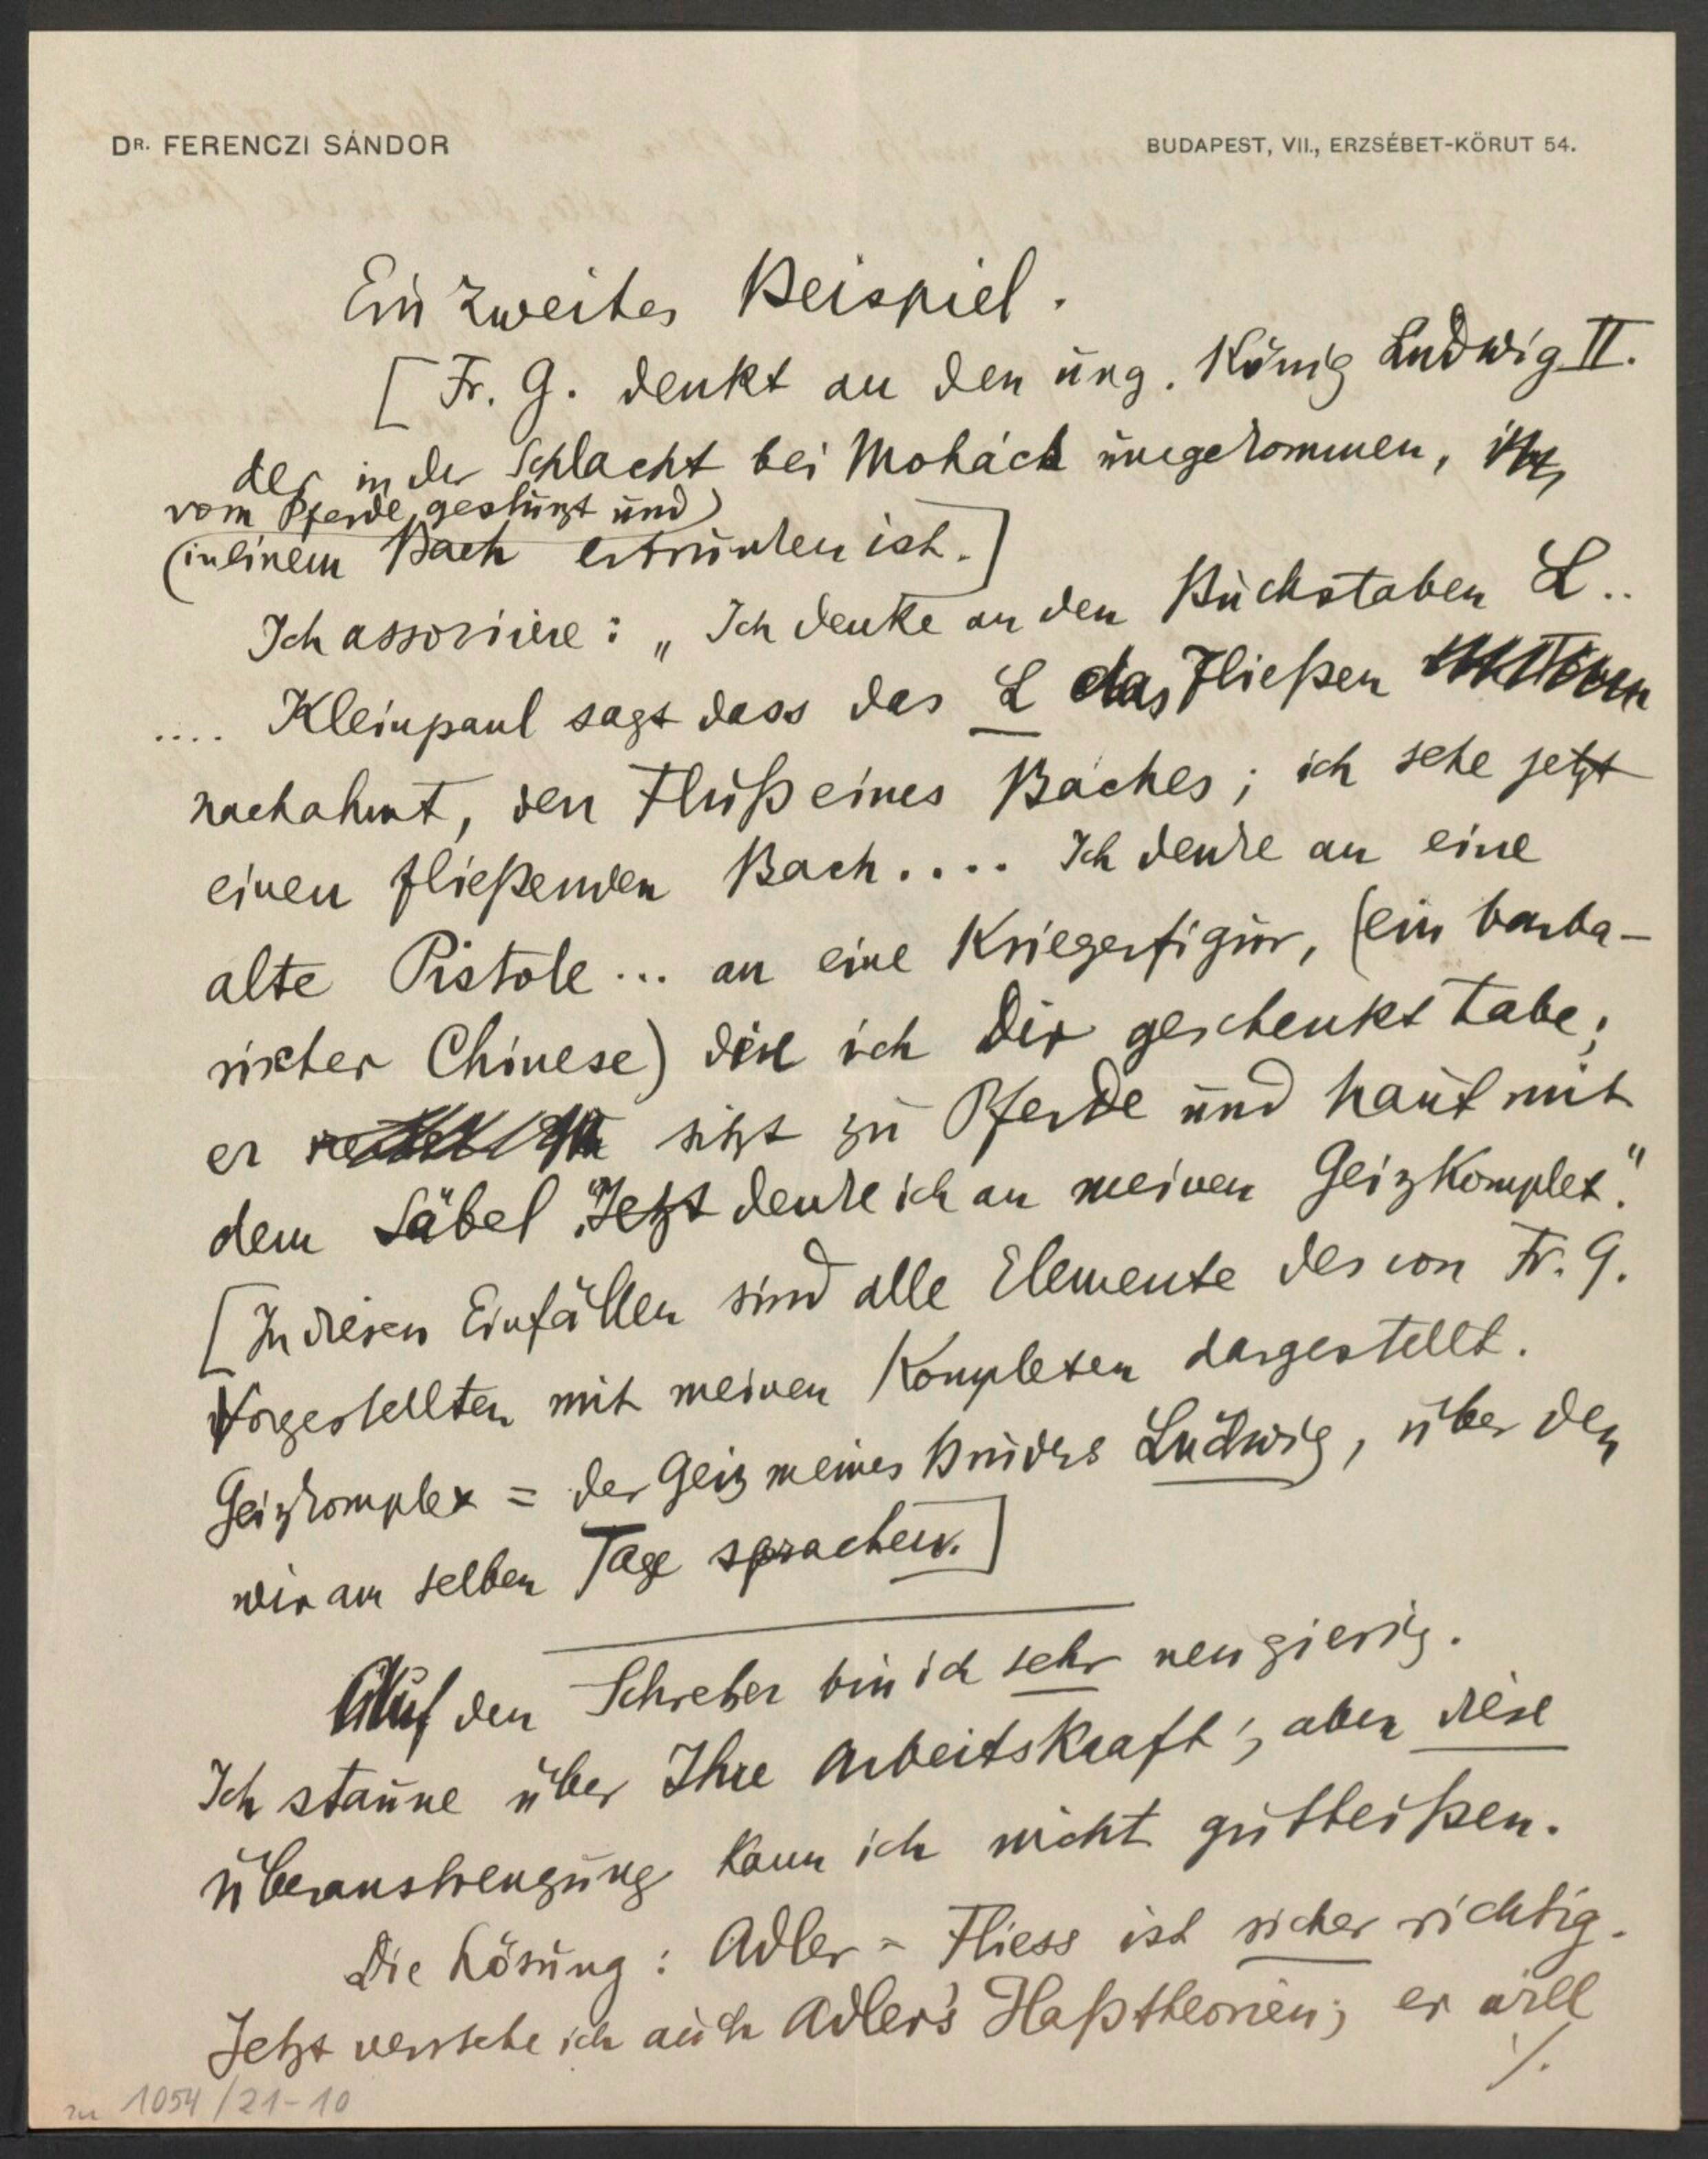 DR. FERENCZI SÁNDOR
BUDAPEST, VII., ERZSÉBET-KÖRUT 54.
Ein zweites Beispiel.
[Fr. G. denkt an den ung. König Ludwig II.
der in der Schlacht bei Mohács umgekommen,
vom Pferde gestürzt und)
(in einem Bach ertrunken ist.]
Ich assoziiere: „Ich denke an den Buchstaben L..
.... Kleinpaul sagt dass das L das Fließen
nachahmt, den Fluß eines Baches; ich sehe jetzt
einen fließenden Bach.... Ich denke an eine
alte Pistole... an eine Kriegerfigur, (ein barba-
rischer Chinese) die ich Dir geschenkt habe;
er sitzt zu Pferde und haut mit
dem Säbel. "Jetzt denke ich an meinen Geizkomplex."
[In diesen Einfällen sind alle Elemente des von Fr. G.
Vorgestellten mit meinen Komplexen dargestellt.
Geizkomplex = der Geiz meines Bruders Ludwig, über den
wir am selben Tage sprachen.]
Auf den Schreber bin ich sehr neugierig.
Ich staune über Ihre Arbeitskraft; aber diese
Überanstrengung kann ich nicht gutheißen.
Die Lösung: Adler = Fliess ist sicher richtig.
Jetzt verstehe ich auch Adler's Haßtheorien; er will
./.
zu 1054/21-10